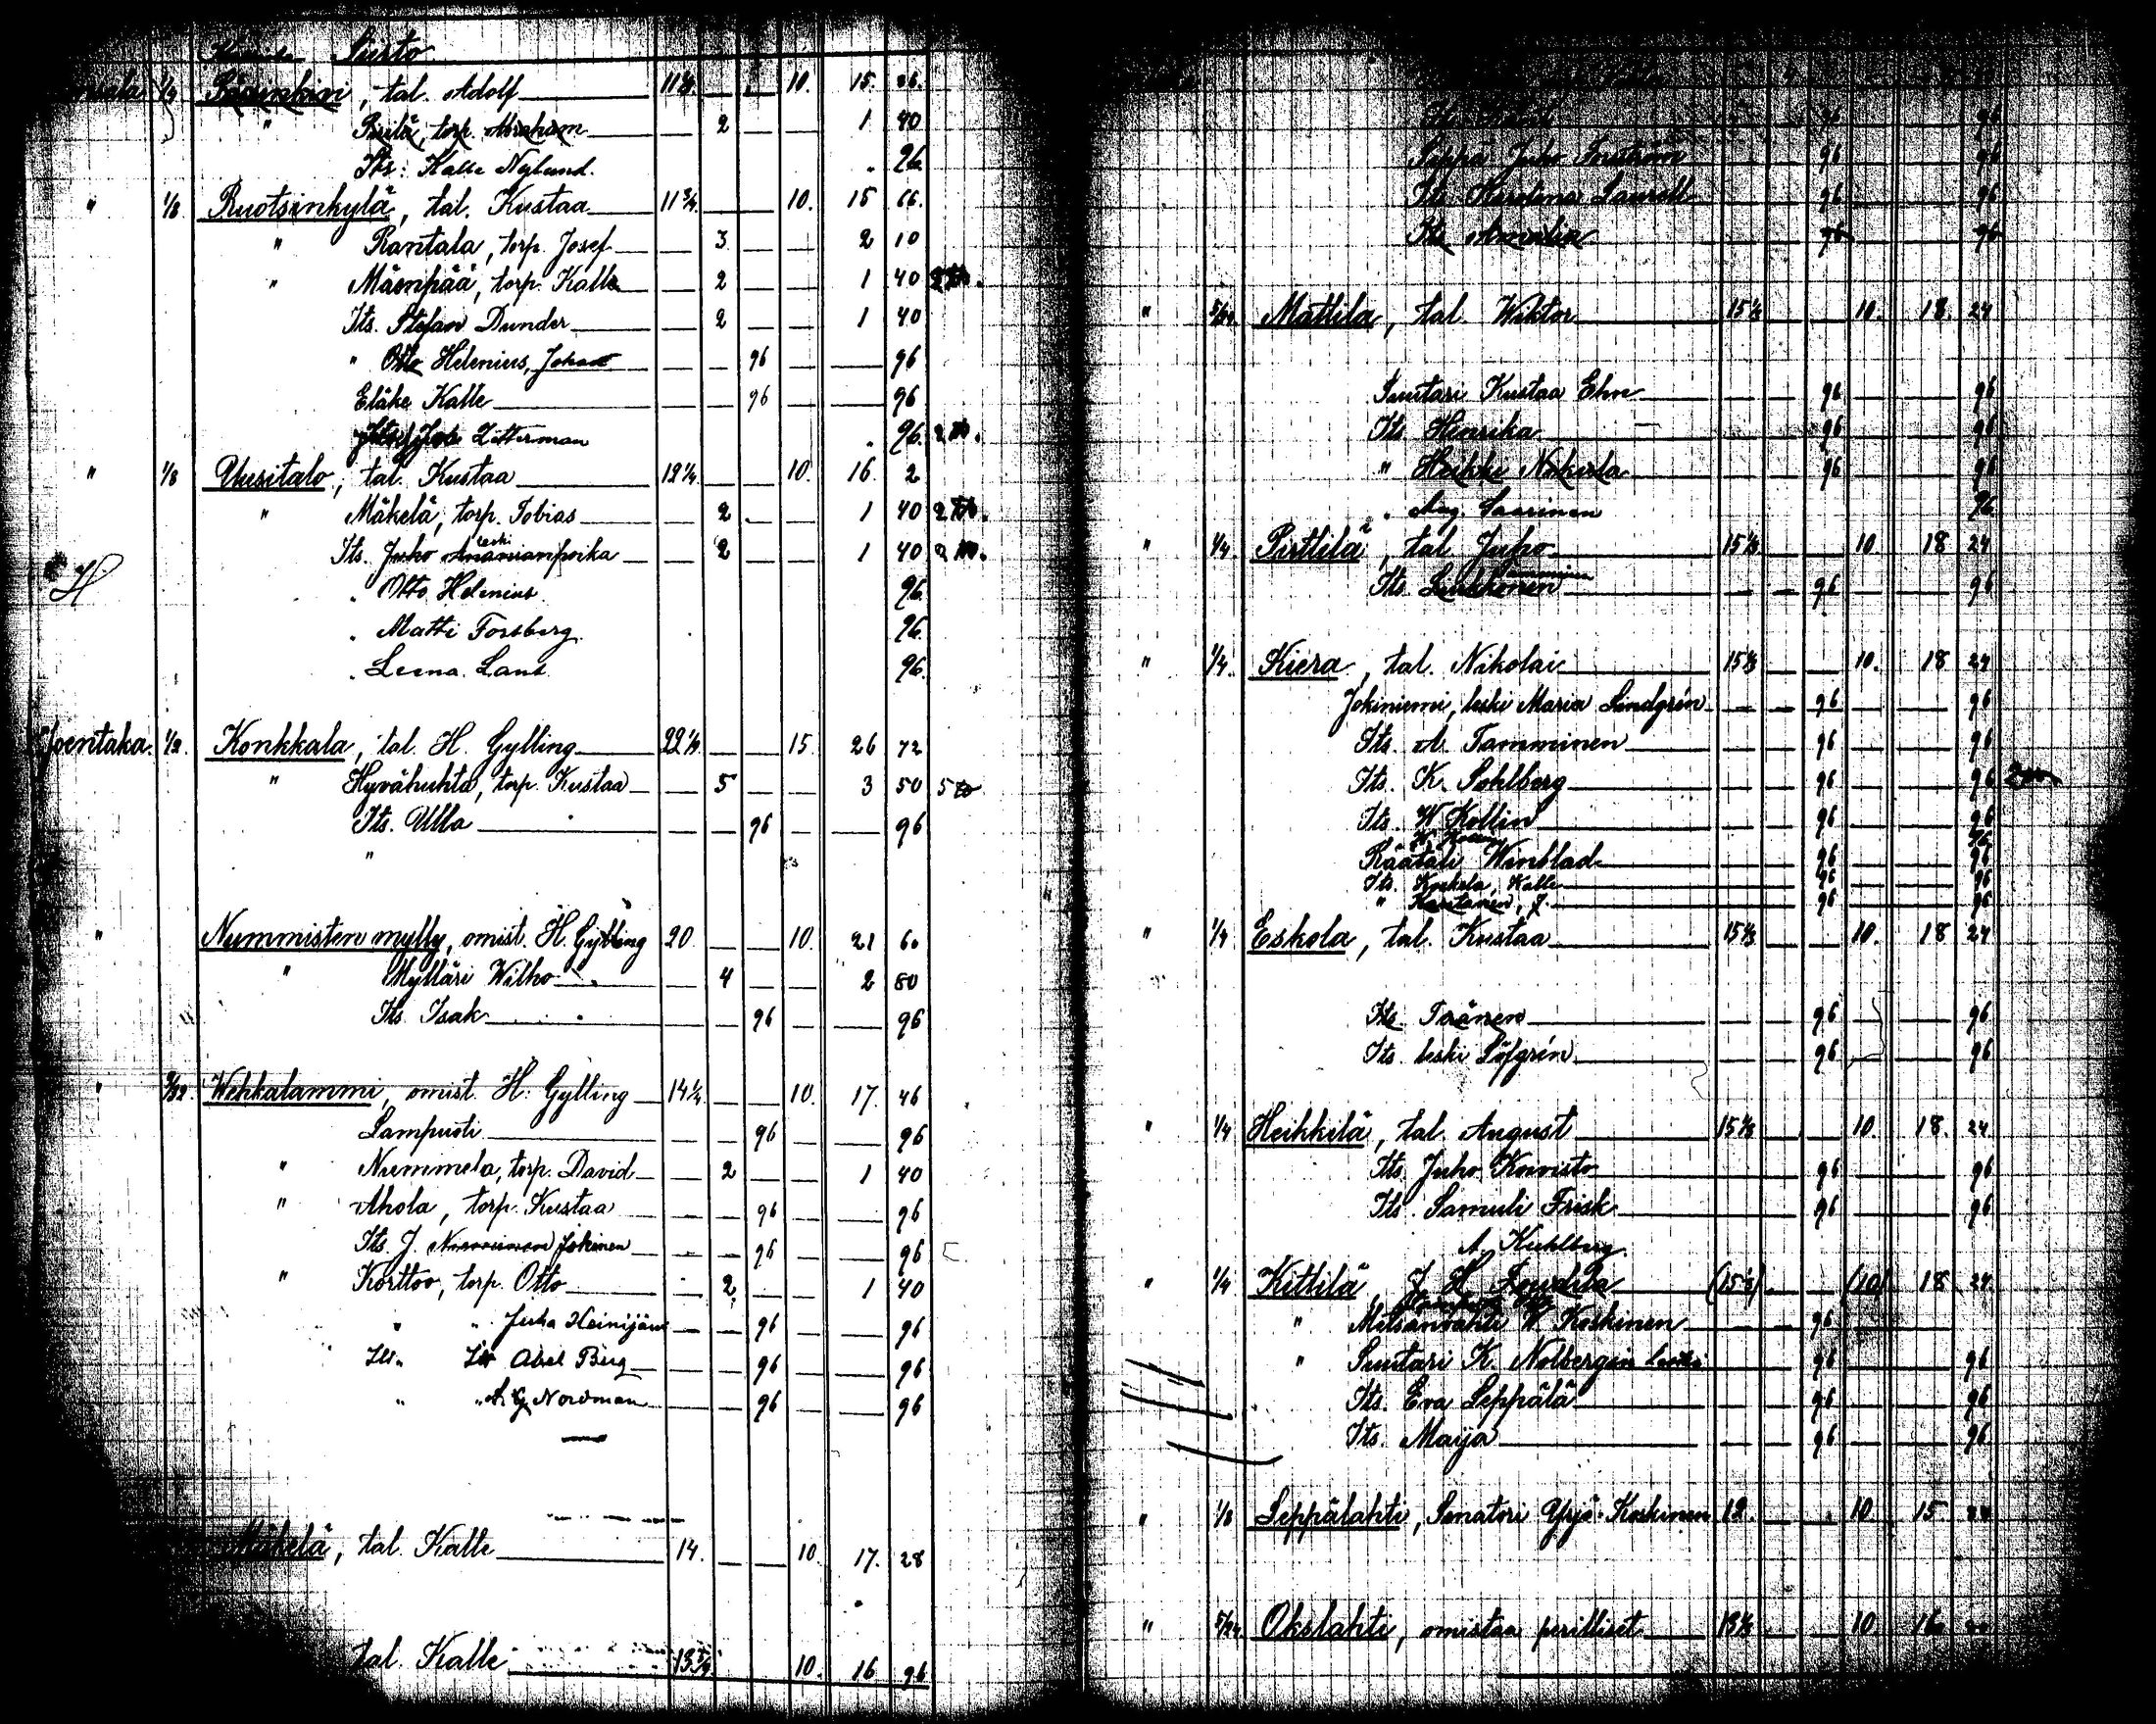 Siisto
1/9 Räsinkivi, tal. Adolf 11 10. 15. 26.
" Pirilä, torp. Abraham 2 1 40
Its: Kalle Nylund. " 96
" 1/8 Ruotsinkylä, tal. Kustaa 11 3/4 10. 15 66.
" Rantala, torp. Josef 3 2 10
" Mäenpää, torp. Kalle 2 1 40
Its. Stefan Dunder 2 1 40
" Otto Helenius, Johan 96 96
Eläke Kalle 96 96
Litterman . 96
" 1/8 Uusitalo, tal. Kustaa 12 1/4 10. 16. 2
" Mäkelä, torp. Tobias 2 1 40
Its. Juho Ananianpoika leski 2 1 40
H " Otto Helenius 96
" Matti Forsberg. 96
" Leena Lant 96
Joentaka. 1/2. Konkkala, tal. H. Gylling 22 1/3 15. 26 72
" Hyvähuhta, torp. Kustaa 5 3 50 5
Its. Ulla 96 96
"
" Nummisten mylly, omist. H. Gylling 20 10. 21 60
" Mylläri Wilho 4 2 80
Its. Isak 96 96
" 9/32. Wehkalammi, omist. H. Gylling 14 1/4 10. 17. 46
Lampuoti 96 96
" Nummela, torp. David 2 1 40
" Ahola, torp. Kustaa 96 96
Its. J. Nieminen Jokinen 96 96
" Korttoo, torp. Otto 2 1 40
" " Juha Heinijäni 96 96
Its. Abel Berg 96 96
" " A. G. Nordman 96 96
Mäkelä, tal. Kalle 14. 10. 17. 28
tal. Kalle 13 10. 16 96
96 96
Seppä Juho Forström 96 96
Its Karolina Laurell 96 96
Its Amalia 96 96
" 5/24. Mattila, tal. Wiktor 15 1/3 10. 18. 24
Suutari Kustaa Ehn 96 96
Its Henrika 96 96
" Heikki Nokusla 96 96
" Aug. Saarinen 96
" 1/4. Pirttilä, tal. Juho 15 1/3 10. 18 24
Its. Linkkonen 96 96
" 1/4. Kiera, tal. Nikolai 15 1/3 10. 18. 24
Jokiniemi, leski Maria Lindgrén 96 96
Its. A. Tamminen 96 96
Its. K. Sohlberg 96 96
Its. W. Kollin 96 96
96
Räätäli Winblad 96 96
Its. Koskela, Kalle 96 96
" Rautanen, J. 96 96
" 1/4 Eskola, tal. Kustaa 15 1/3 10. 18 24
Its. Toänen 96 96
Its. leski Löfgrén 96 96
" 1/4 Heikkilä, tal. August 15 1/3 10. 18. 24
Its. Juho Koivisto 96 96
Its. Samuli Frisk 96 96
A. Kuhlberg.
" 1/4 Kittilä, J. H. (15 1/3) (10) 18 24
" Metsänvahti W. Koskinen 96
" Suutari K. Nolbergin leski 96 96
Its. Eva Seppälä 96 96
Its. Marja 96 96
" 1/8 Seppälahti, Senatori Yrjö-Koskinen 12. 10 15
" 5/24 Okslahti, omistaa perilliset 13 1/3 10. 16